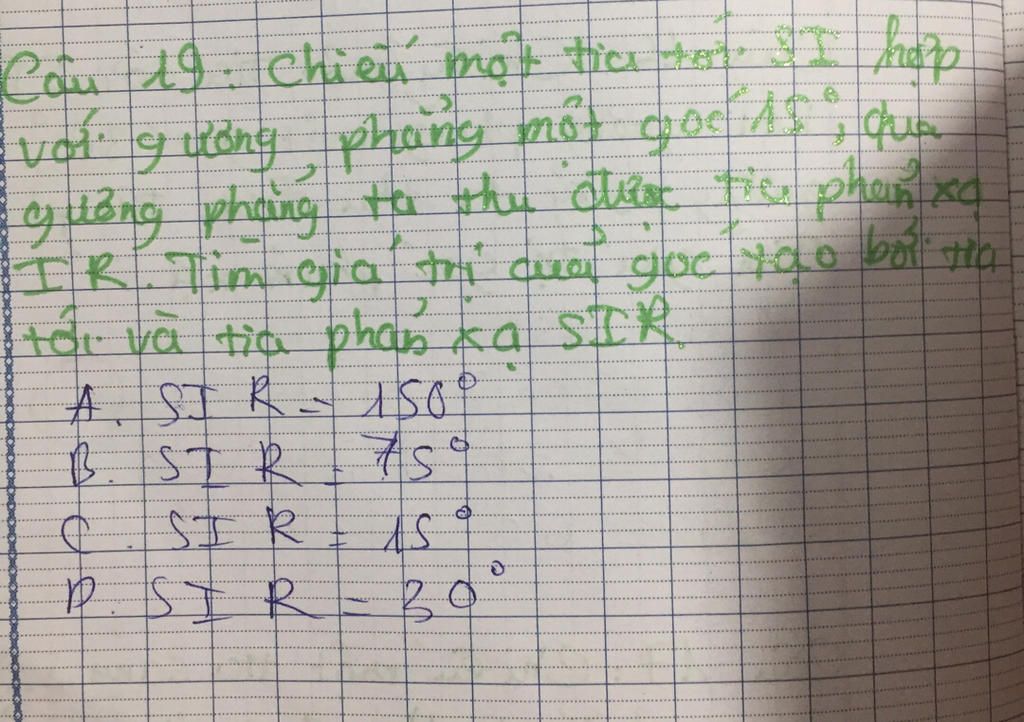 Câu 19: Chiếu một tia tới SI hợp
với gương phẳng một góc 15°, qua
gương phẳng ta thu được tia phản xạ
IR. Tìm giá trị của góc tạo bởi tia
tới và tia phản xạ SIR.
A. SIR = 150°
B. SIR = 75°
C. SIR = 15°
D. SIR = 30°